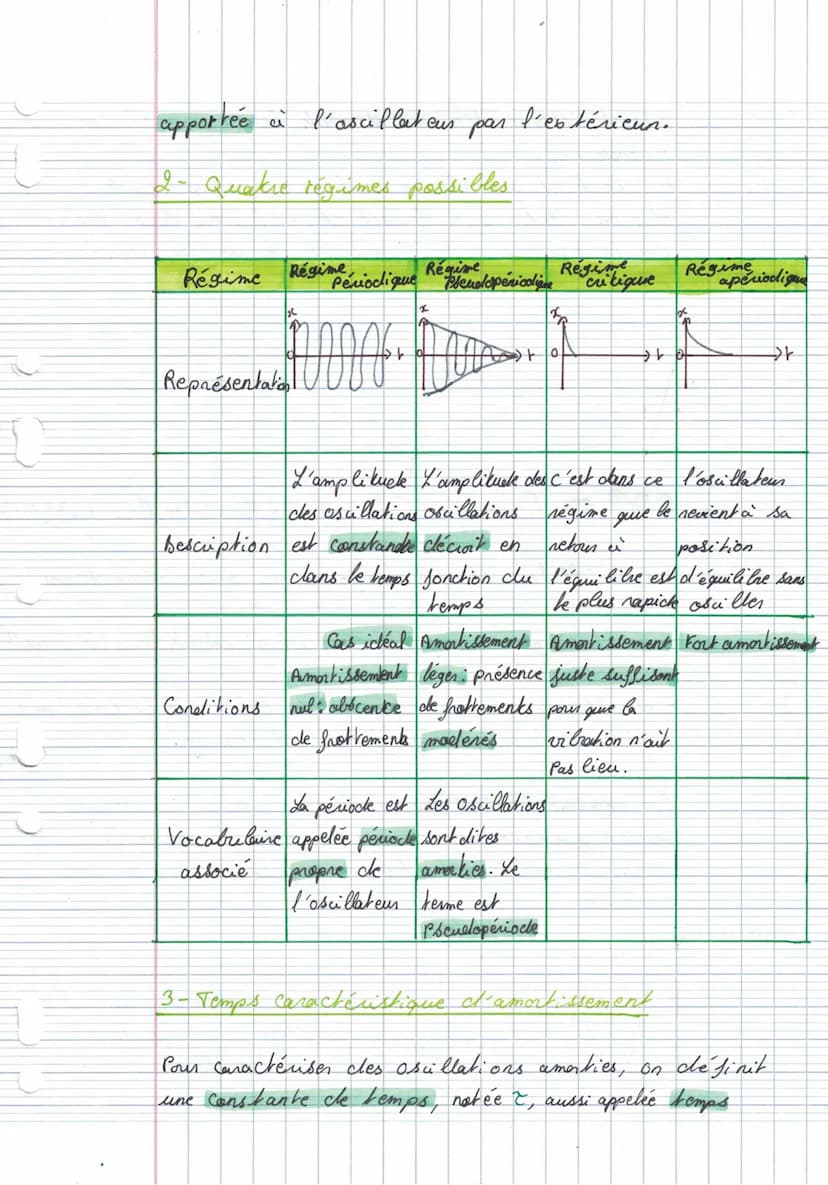 apportée à l'oscillateur par l'extérieur.
2 - Quatre régimes possibles
Régime
Régime Périodique
Régime Pseudopériodique
Régime critique
Régime apériodique
Représentation
x
0
t
x
0
t
x
0
t
x
0
t
Description
L'amplitude
des oscillations
est constante
dans le temps
L'amplitude des
oscillations
décroit en
fonction du
temps
c'est dans ce
régime que le
retour à
l'équilibre est
le plus rapide
l'oscillateur
revient à sa
position
d'équilibre sans
osciller
Conditions
Cas idéal
Amortissement
nul : abscence
de frottements
Amortissement
léger : présence
de frottements
modérés
Amortissement
juste suffisant
pour que la
vibration n'ait
Pas lieu.
Fort amortissement
Vocabulaire
associé
La période est
appelée période
propre de
l'oscillateur
Les oscillations
sont dites
amorties. Le
terme est
Pseudopériode
3 - Temps caractéristique d'amortissement
Pour caractériser des oscillations amorties, on définit
une constante de temps, notée τ, aussi appelée temps